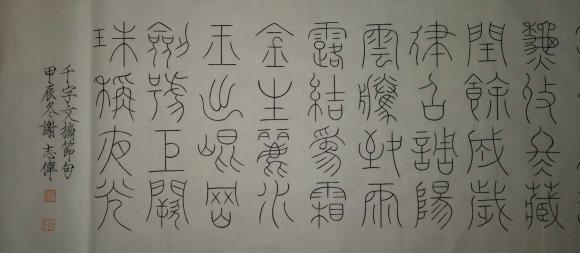 秋收冬藏
閏餘成歲
律召調陽
雲騰致雨
露結為霜
金生麗水
玉出崑岡
劍號巨闕
珠稱夜光
千字文摘節句
甲辰冬謝志偉